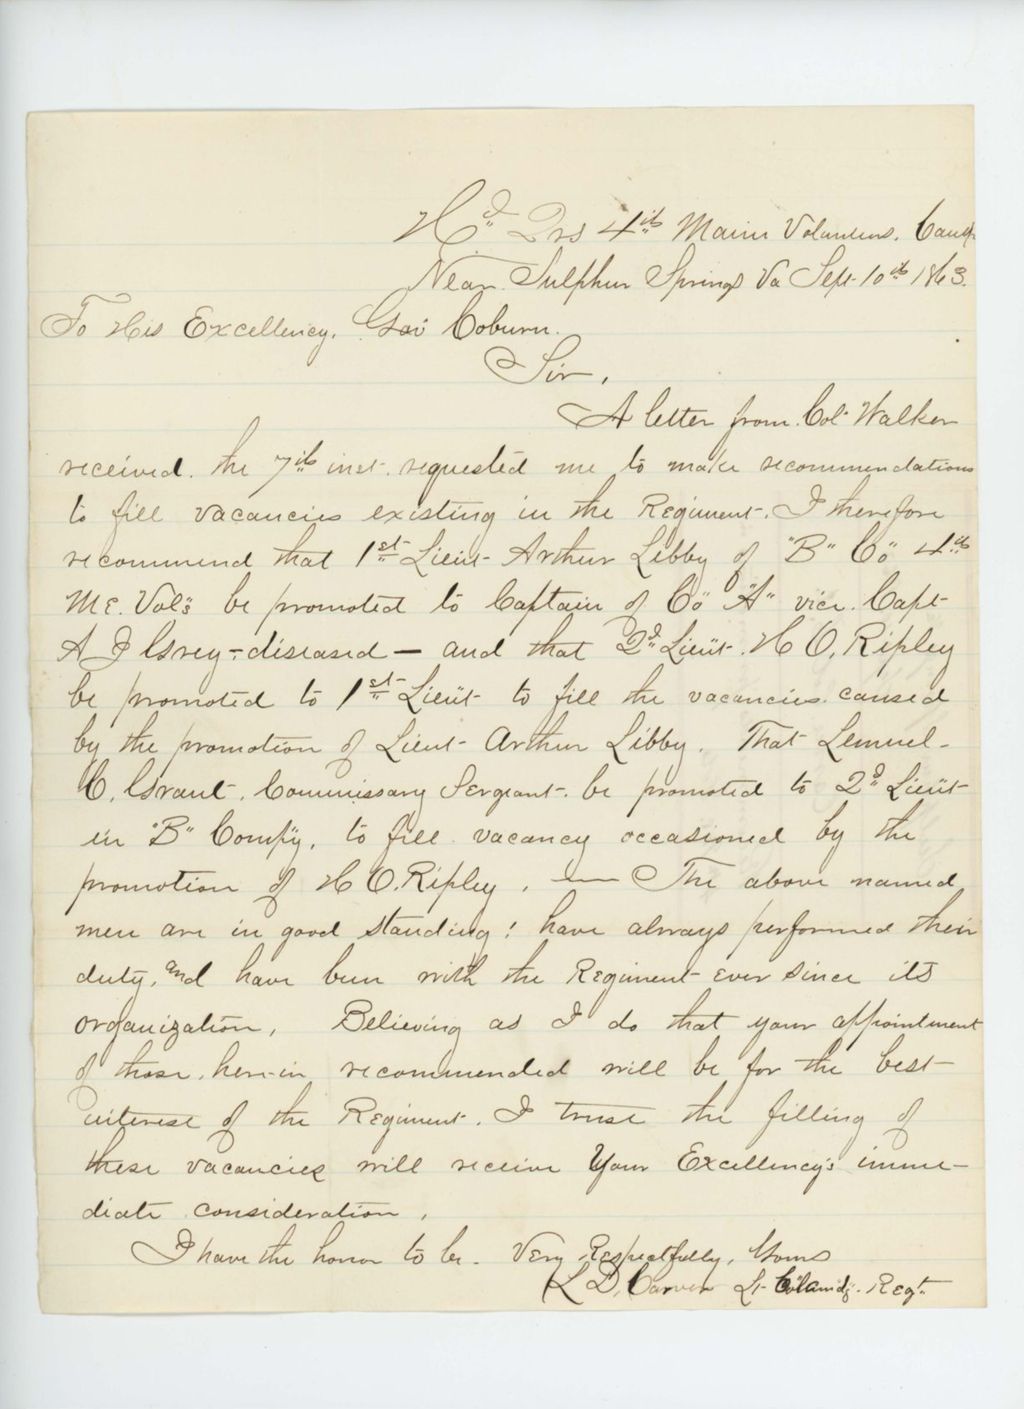 Hd Qrs 4th Maine Volunteers. Camp
Near Sulphur Springs Va Sept 10th 1863.
To His Excellency, Gov Coburn.
Sir,
A letter from Col Walker
received the 7th inst. requested me to make recommendations
to fill vacancies existing in the Regiment. I therefore
recommend that 1st Lieut Arthur Libby of "B" Co 4th
Me. Vols be promoted to Captain of Co "A" vice Capt
A J Gray - diseased — and that 2d Lieut. H O. Ripley
be promoted to 1st Lieut to fill the vacancies caused
by the promotion of Lieut Arthur Libby. That Lemuel
C. Grant, Commissary Sergeant, be promoted to 2d Lieut
in "B" Compy, to fill vacancy occasioned by the
promotion of H O. Ripley. — The above named
men are in good standing; have always performed their
duty, and have been with the Regiment ever since its
organization. Believing as I do that your appointment
of those herein recommended will be for the best
interest of the Regiment. I trust the filling of
these vacancies will receive Your Excellency's imme-
diate consideration.
I have the honor to be Very Respectfully, Yours
L D. Carver Lt Col Comdg. Regt.